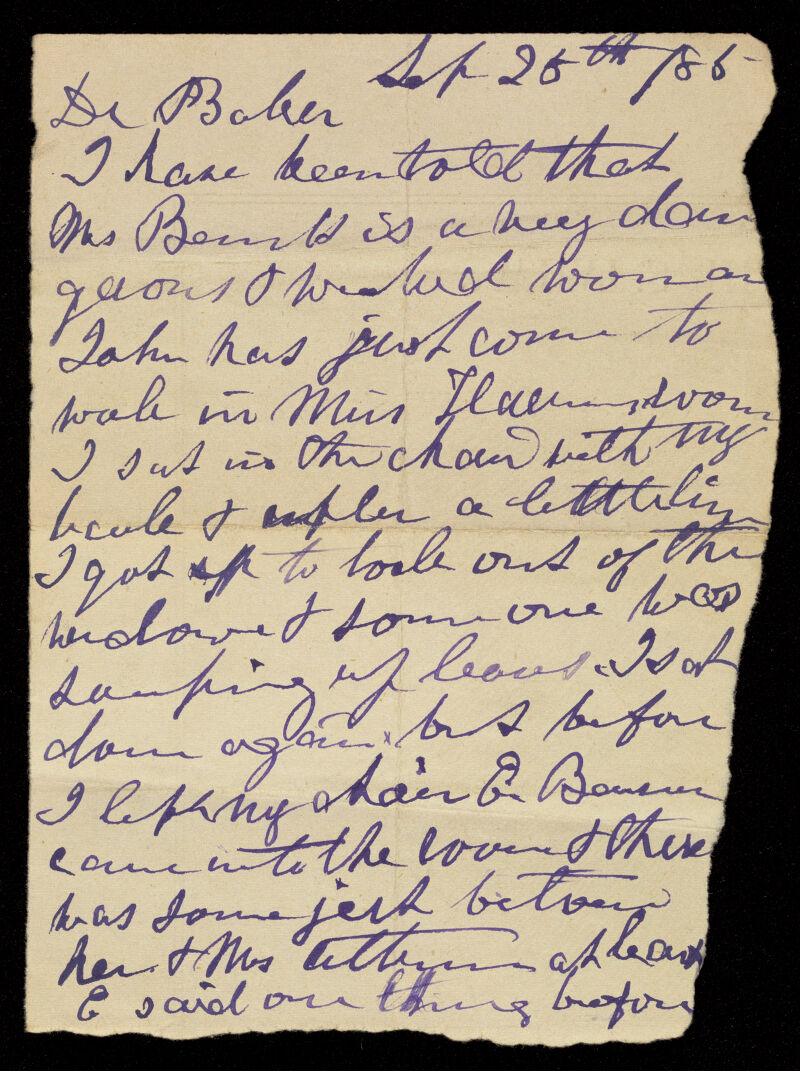 Sep 25th /85
Dr Baker
I have been told that
Mrs is a very dan
gerous & wicked woman
John has just come to
work in Miss room
I sat in the chair with my
back & a letttle
I got up to look out of the
window & some one was
up leaves. I sat
down again but before
I left my chair E.
came into the room & there
was some jest between
her & Mrs at least
E said one thing before